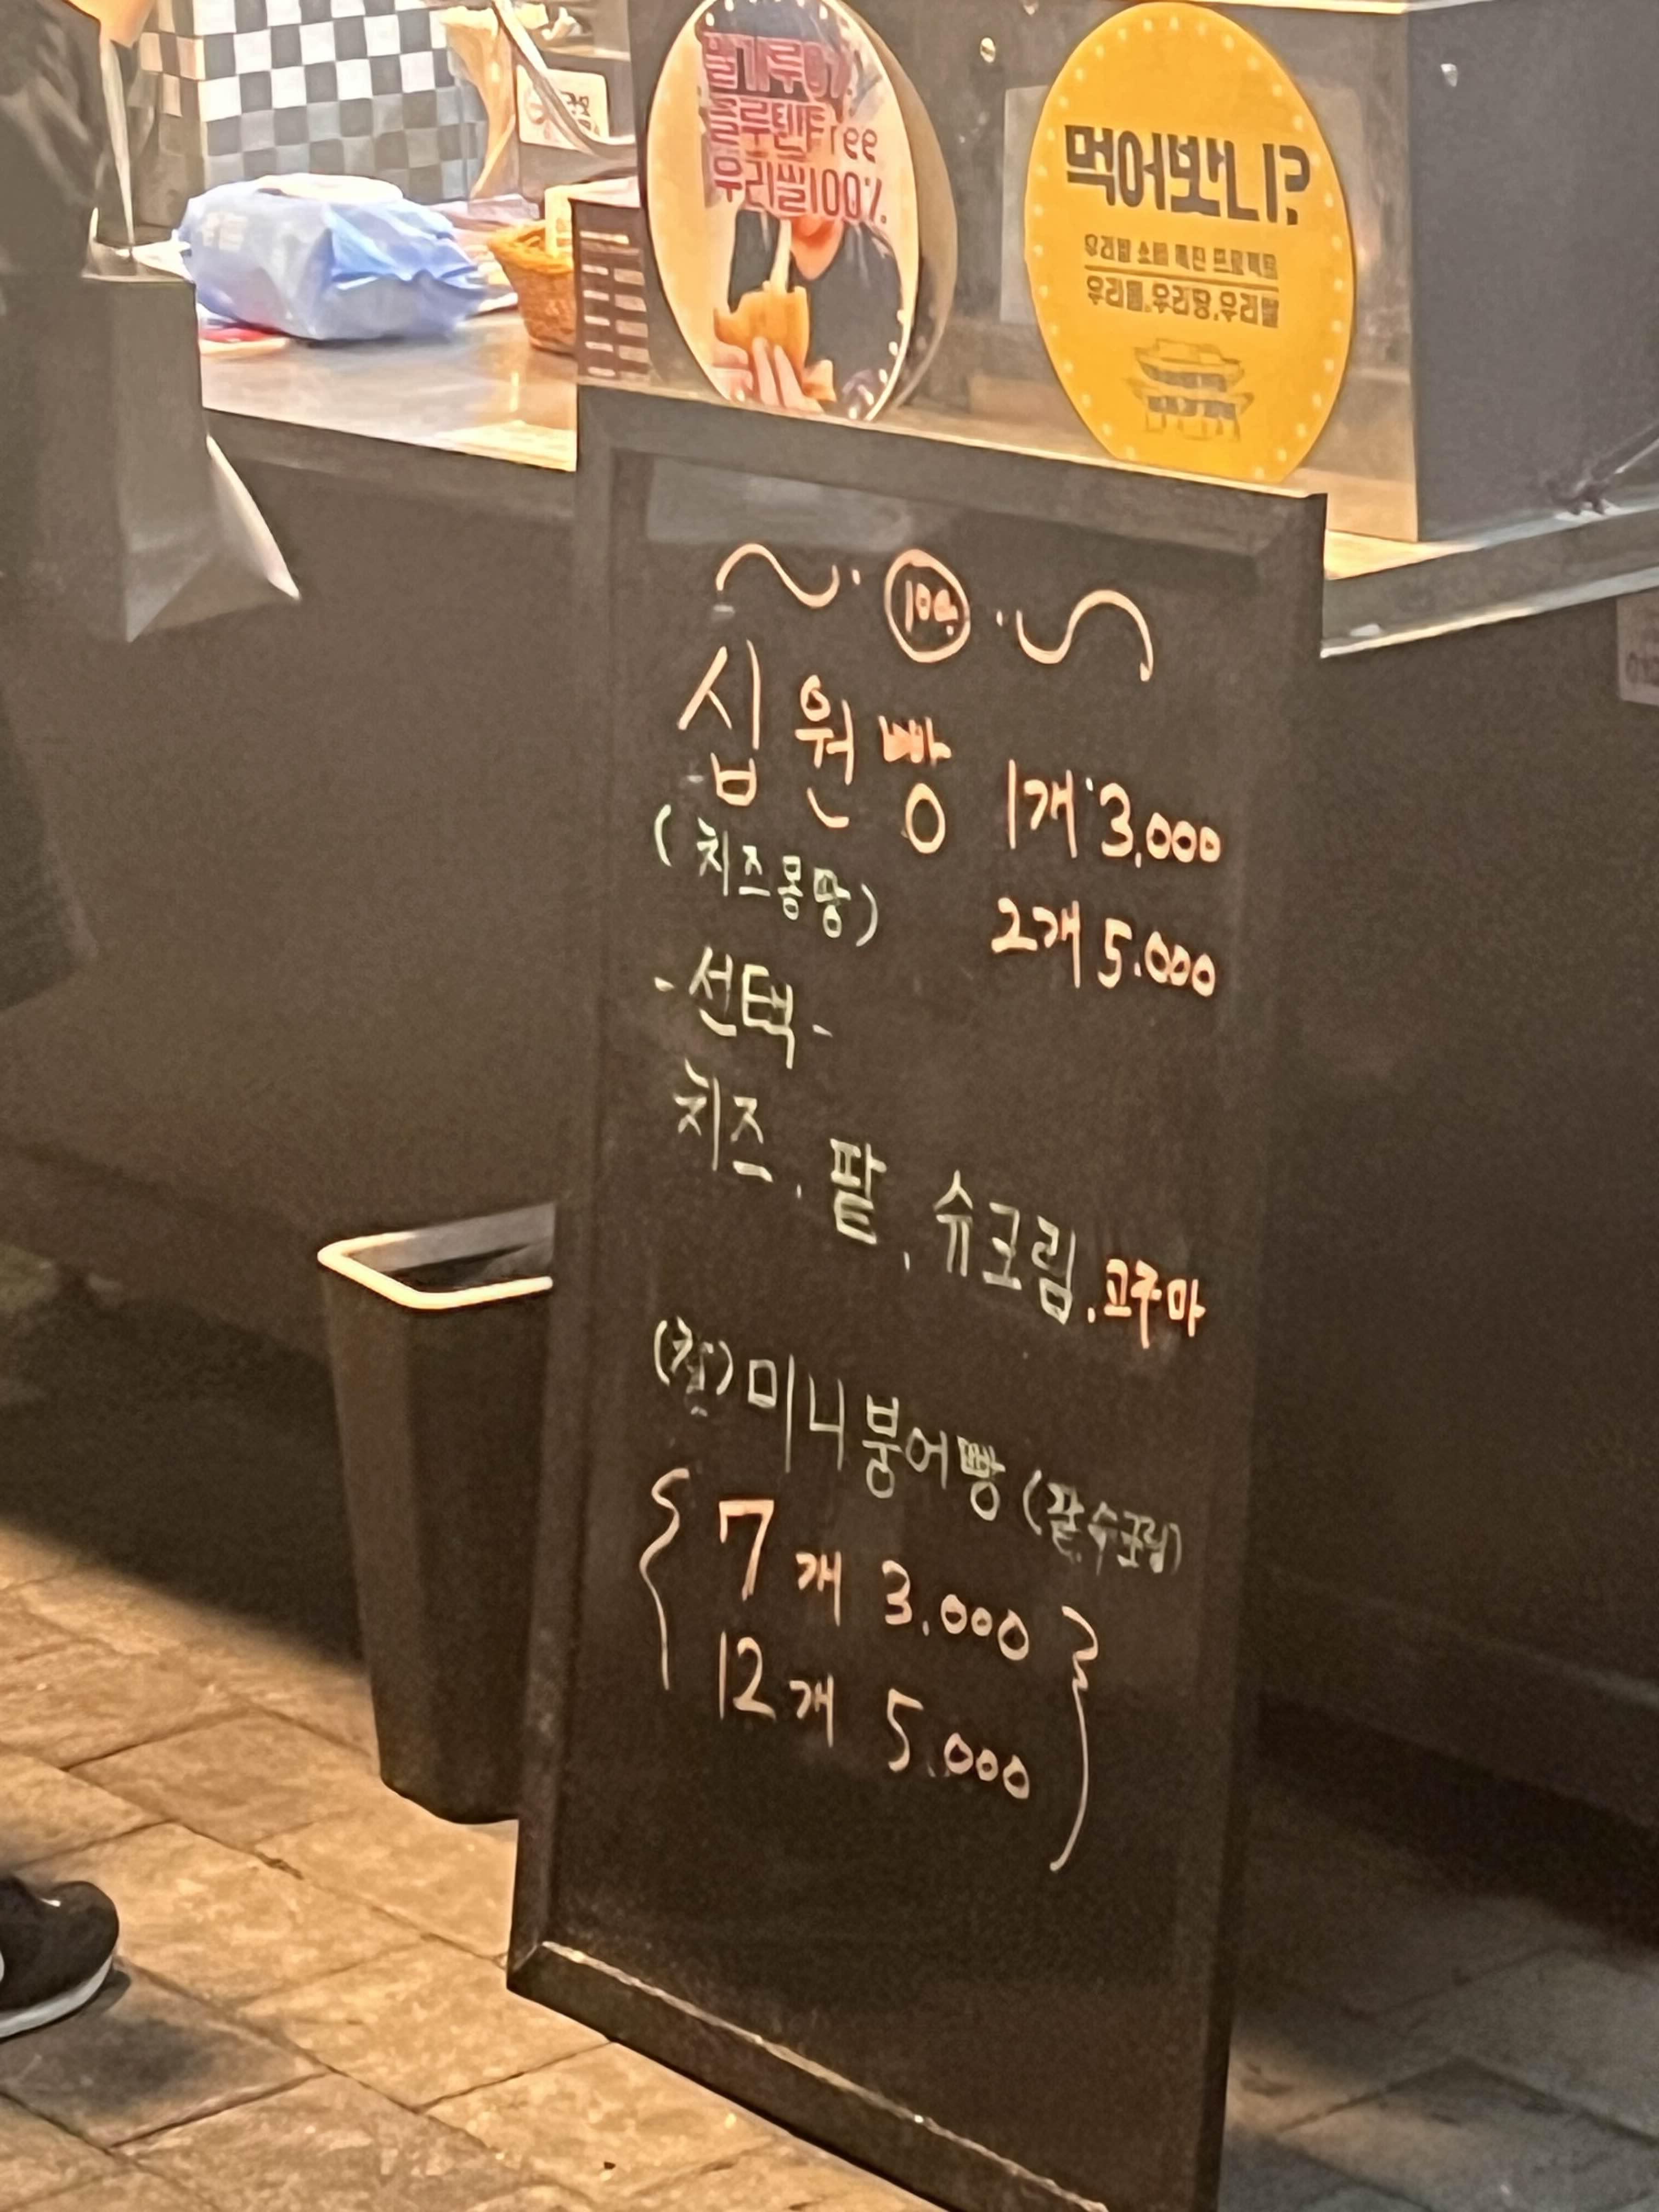 밀가루0%
글루텐Free
우리밀100%
먹어봤니?
우리밀 소비 촉진 프로젝트
우리몸,우리땅,우리밀
십원빵 1개 3,000
(치즈몽땅) 2개 5.000
-선택-
치즈, 팥, 슈크림, 고구마
(찰)미니붕어빵 (팥,슈크림)
7개 3.000
12개 5.000